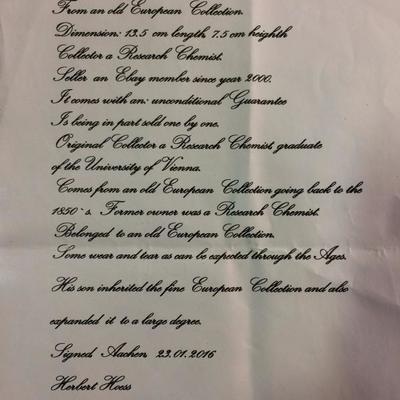 From an old European Collection.
Dimension: 13.5 cm length 7.5 cm heighth
Collector a Research Chemist.
Seller an Ebay member since year 2000.
It comes with an: unconditional Guarantee
Is being in part sold one by one.
Original Collector a Research Chemist, graduate
of the University of Vienna.
Comes from an old European Collection going back to the
1850`s. Former owner was a Research Chemist.
Belonged to an old European Collection.
Some wear and tear as can be expected through the Ages.
His son inherited the fine European Collection and also
expanded it to a large degree.
Signed Aachen 23.01.2016
Herbert Hoess